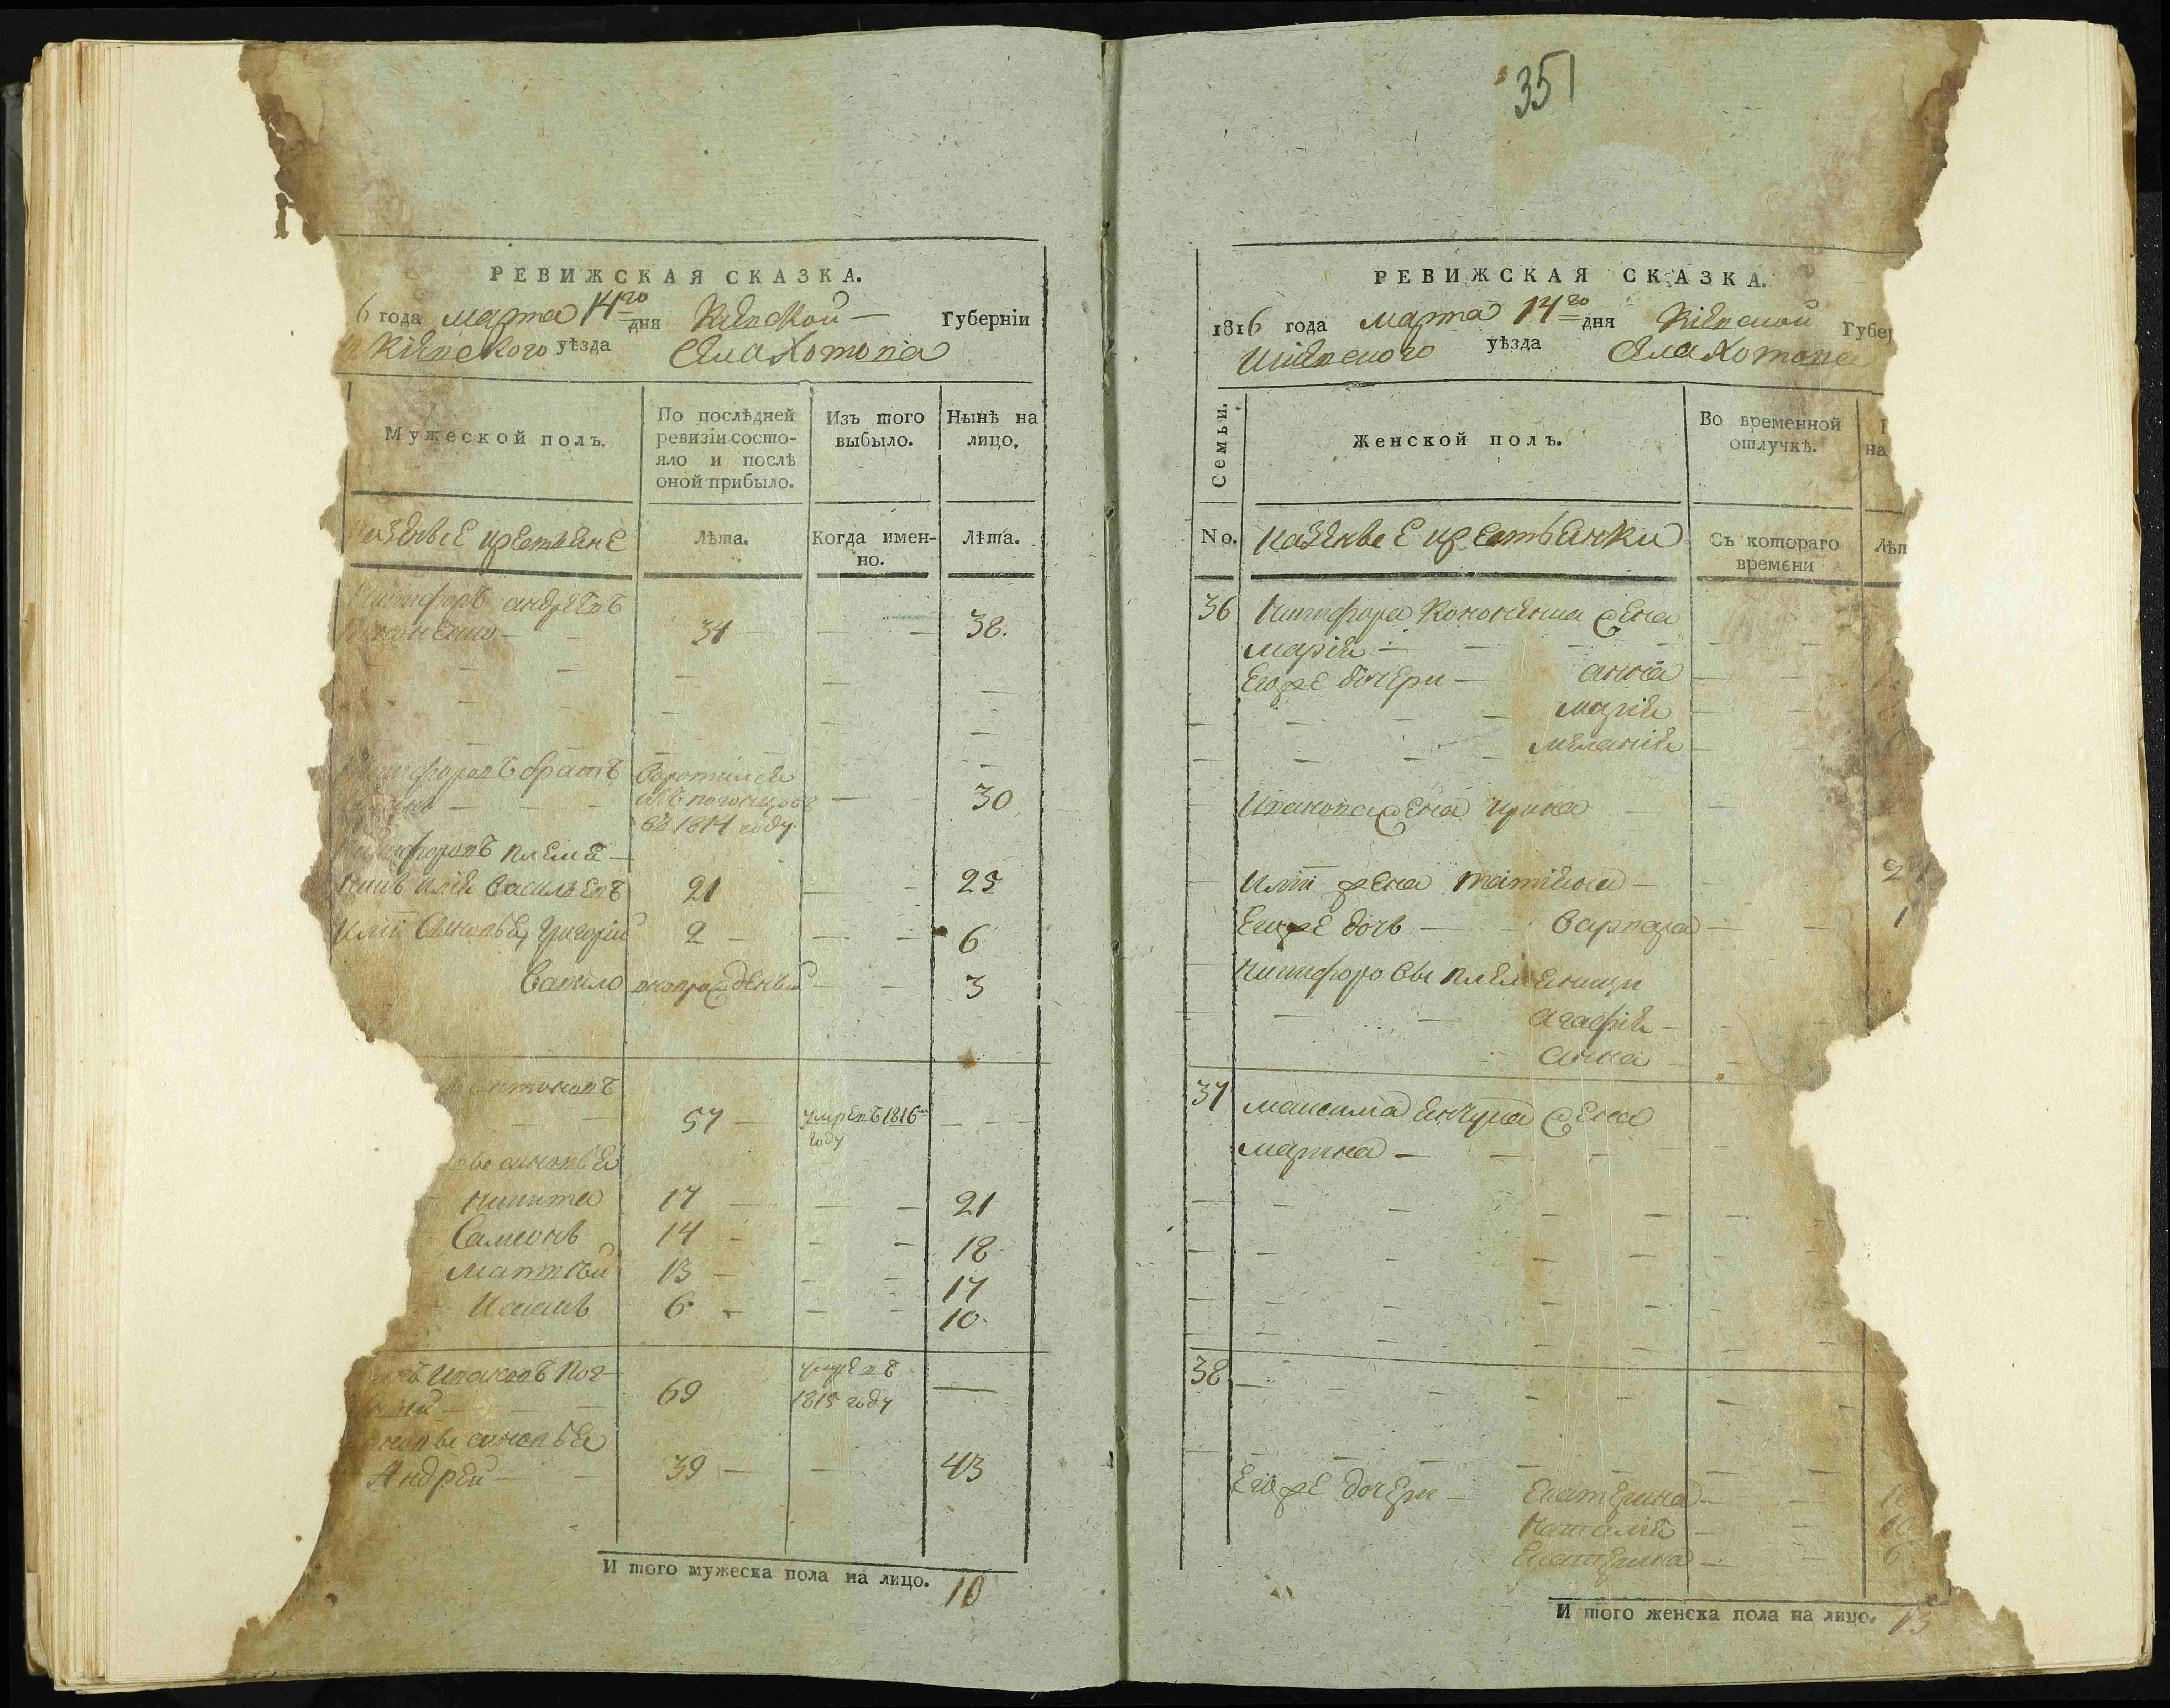 РЕВИЖСКАЯ СКАЗКА.
6 года марта 14го дня Кіевской Губерніи
Кіевского уѣзда Села Хотова
Мужеской полъ.
По послѣдней ревизіи состо-
яло и послѣ
оной прибыло.
Изъ того
выбыло.
Нынѣ на
лицо.
Лѣта.
Когда имен-
но.
Лѣта.
андреевъ
34 38.
братъ
30
въ 1814 году
племя-
никъ Илія Васильевъ 21 25
Иліи синовья Григорій 2 6
Вавило новорожденъ 3
Антоновъ
57 умревъ 1816
году
синовья
Никита 17 21
Самсонъ 14 18
Матвѣй 13 17
Исакъ 6 10
Ивановъ
69 умревъ
1815 году
синовья
Андрей 39 43
И того мужеска пола на лицо. 10
351
РЕВИЖСКАЯ СКАЗКА.
1816 года марта 14го дня Кіевской Губер
Кіевского уѣзда Села Хотова
Семьи.
Женской полъ.
Во временной
отлучкѣ.
на
No.
казенные крестьянки
Съ котораго
времени
Лѣт
36 Никифора Кононенка жена
Марія
Егоже дочери Анна
Марія
Меланія
Иванова жена Ирина
Иліи жена Татіяна 24
Егоже дочь Варвара 1
Никифоровы племеници
Агафія
Анна
37 Максима жена
Марина
38
Егоже дочери Екатерина
Наталія
Екатерина 6
И того женска пола на лицо. 13